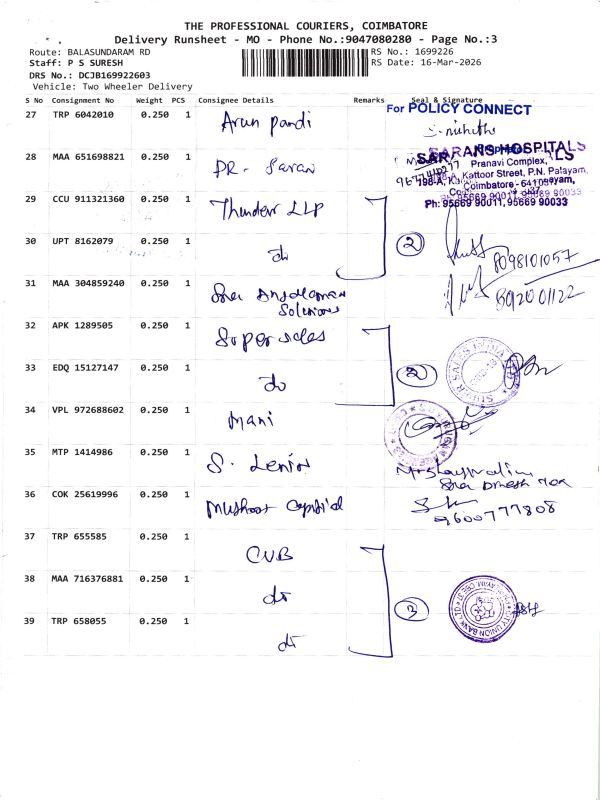 THE PROFESSIONAL COURIERS, COIMBATORE
Delivery Runsheet - MO - Phone No.:9047080280 - Page No.:3
Route: BALASUNDARAM RD
RS No.: 1699226
Staff: P S SURESH
RS Date: 16-Mar-2026
DRS No.: DCJB169922603
Vehicle: Two Wheeler Delivery
S No Consignment No Weight PCS Consignee Details Remarks Seal & Signature
For POLICY CONNECT
27 TRP 6042010 0.250 1 Arun pandi
SARANS HOSPITALS
Pranavi Complex,
198-A, Kattoor Street, P.N. Palayam,
Ph: 95669 90011, 95669 90033
28 MAA 651698821 0.250 1 DR. Saran
29 CCU 911321360 0.250 1 Thunder LLP
30 UPT 8162079 0.250 1 do
2
8098101057
31 MAA 304859240 0.250 1
Solutions
32 APK 1289505 0.250 1 Super sales
33 EDQ 15127147 0.250 1 do
2
34 VPL 972688602 0.250 1 Mani
35 MTP 1414986 0.250 1 S. Lenin
36 COK 25619996 0.250 1 Muthoot Capital
9600777808
37 TRP 655585 0.250 1 CUB
38 MAA 716376881 0.250 1 do
3
CITY UNION BANK LTD
39 TRP 658055 0.250 1 do